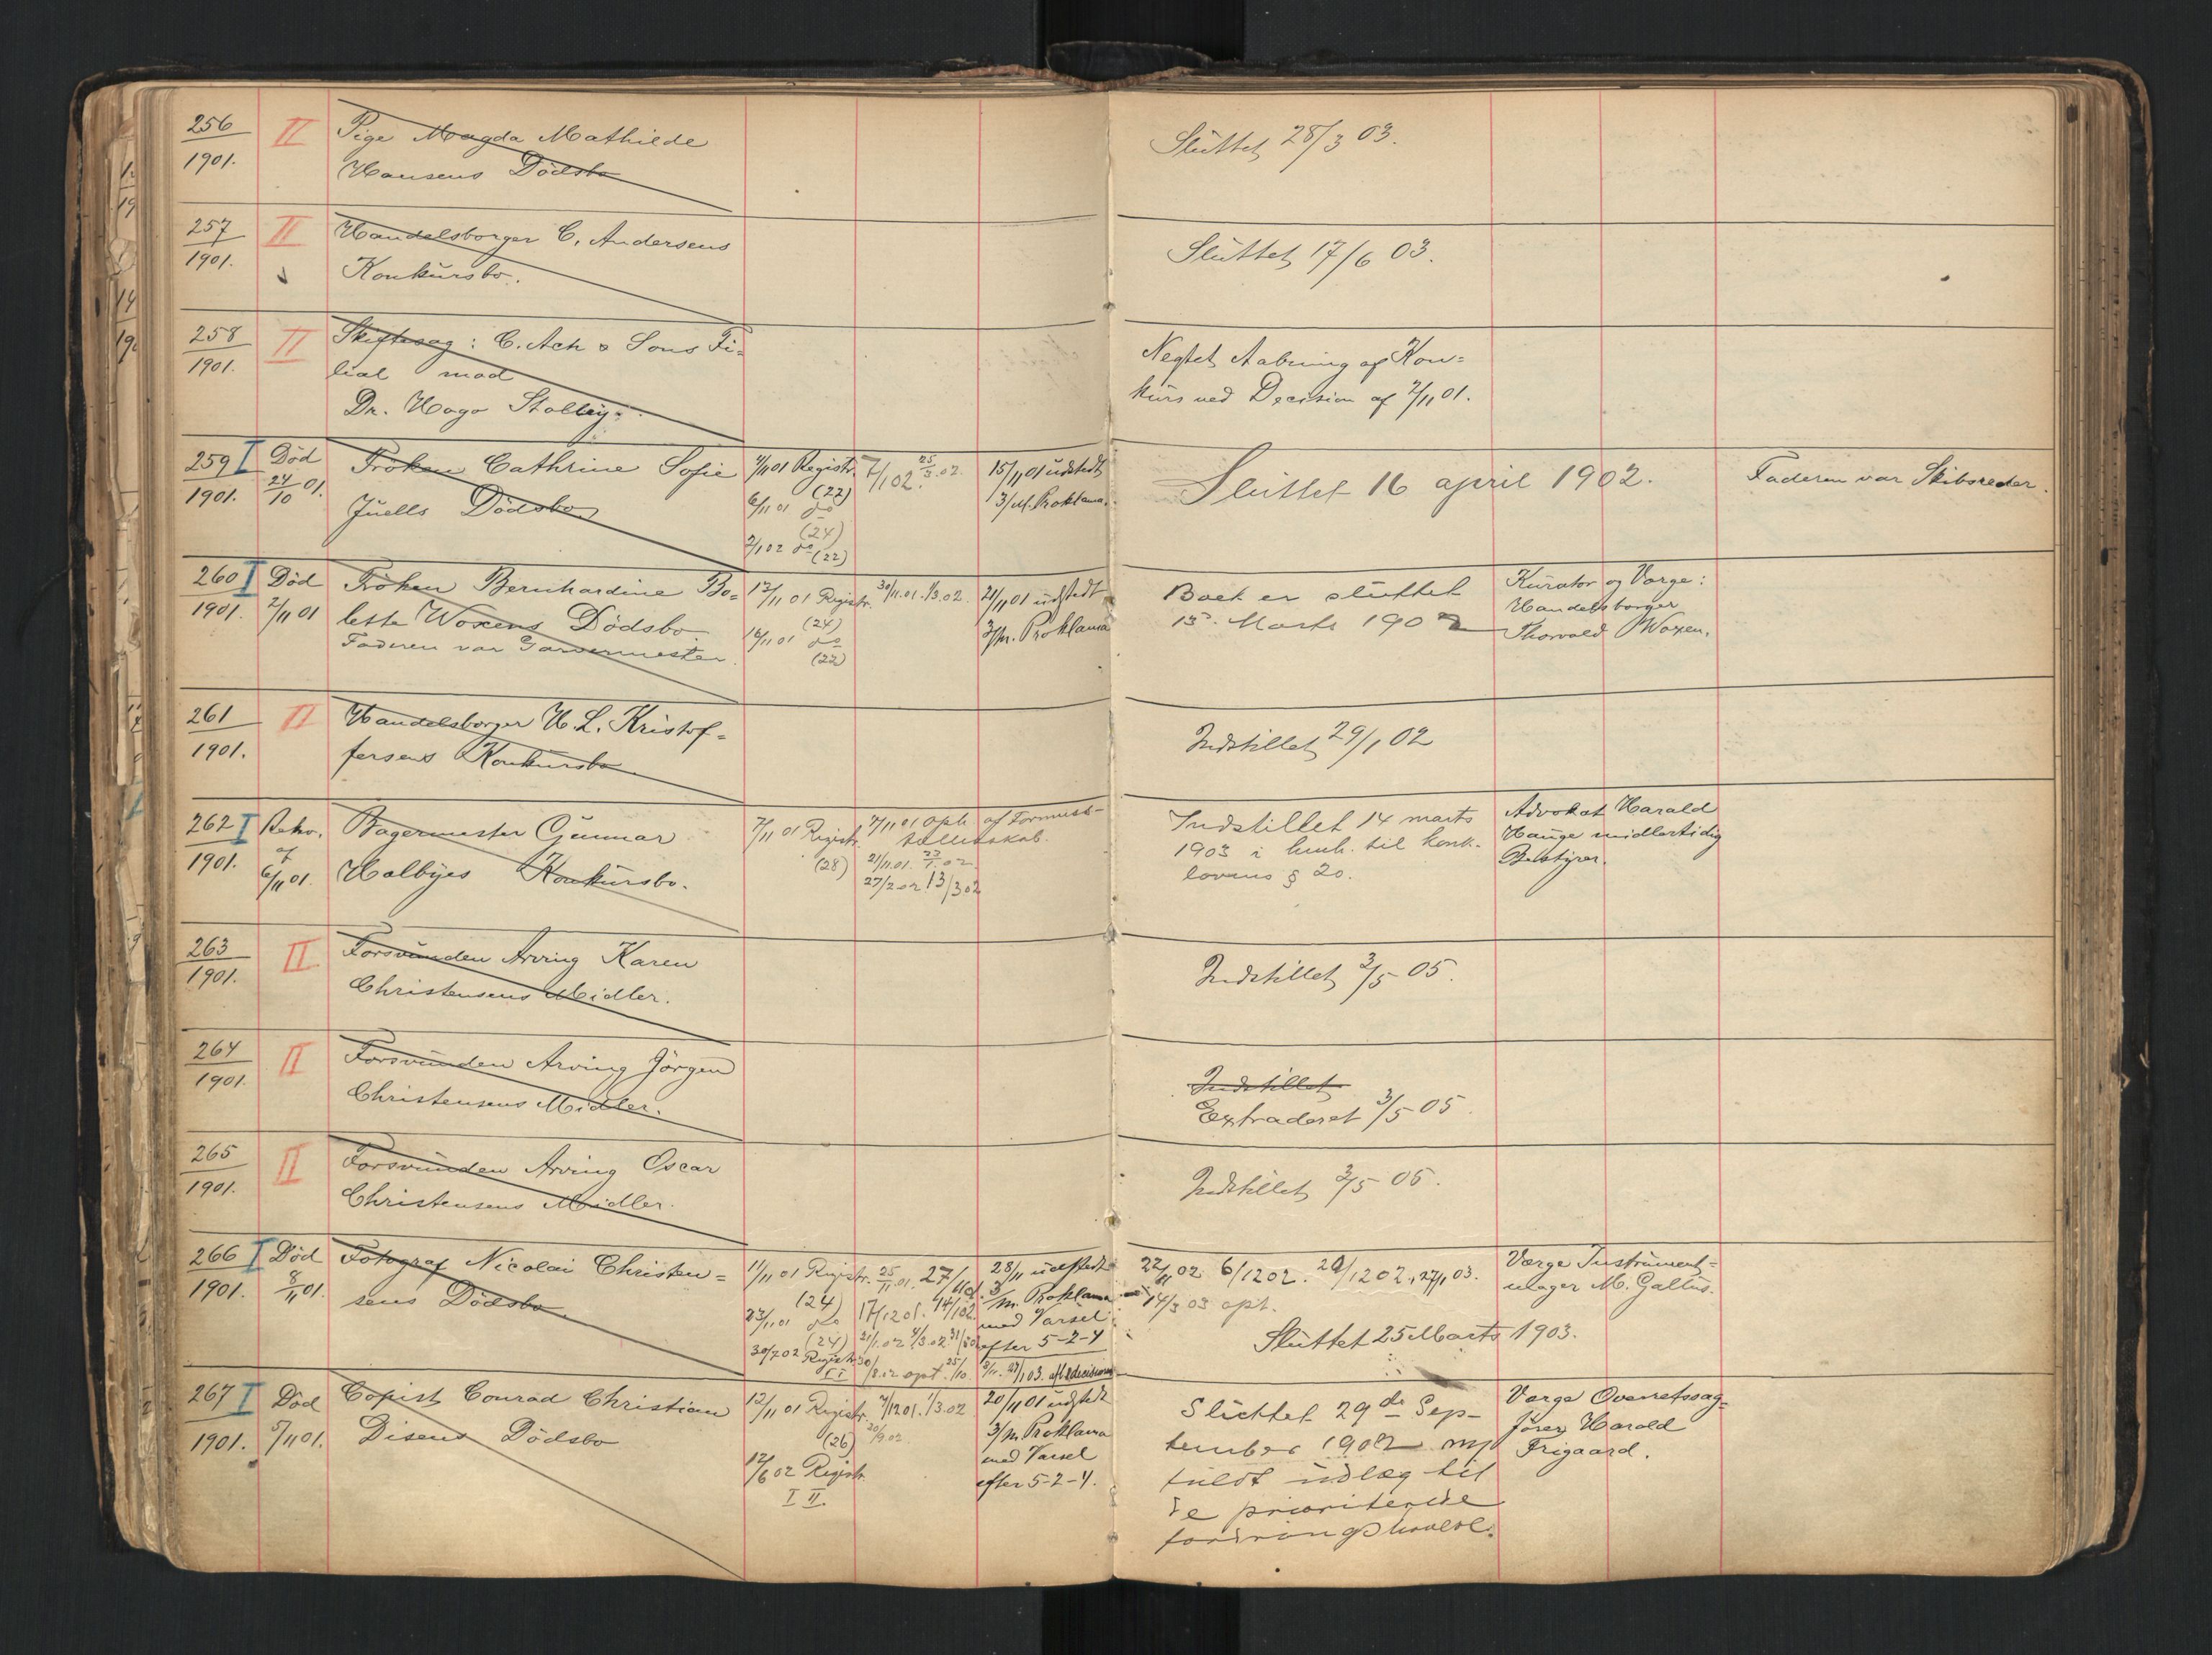 256 II Pige Magda Mathilde Sluttet 28/3 03.
1901. Hansens Dödsbo
257 II Handelsborger C. Andersens Sluttet 17/6 03.
1901. Konkursbo.
258 II Skiftesag: C. Ach & Sons Fi= Negtet Aabning af Kon=
1901. lial mod kurs ved Decision af 7/11 01.
Dr. Hago Stolley.
259 I Död Fröken Cathrine Sofie 4/11 01 Registr. 7/1 02. 25/3 02. 15/11 01 udstedt Sluttet 16 april 1902. Faderen var Skibsreder.
1901. 24/10 01. Juells Dödsbo (22) 3/M. Proklama.
6/11 01 do
(24)
2/1 02 do (22)
260 I Död Fröken Bernhardine Bo= 12/11 01 Registr. 30/11 01. 1/3 02. 21/11 01 udstedt Boet er sluttet Kurator og Værge:
1901. 2/11 01 lette Woxens Dödsbo (24) 3/m. Proklama 15. Marts 1902 Handelsborger
Faderen var Garvermester. 16/11 01 do Thorvald Woxen.
(22)
261 II Handelsborger H. L. Kristof= Indstillet 29/1 02
1901. fersens Konkursbo
262 I Rekv. Bagermester Gunnar 7/11 01 Registr. 7/11 01 oph. af Formues- Indstillet 14 marts Advokat Harald
1901. af Halbyes Konkursbo. (28) fællesskab. 1903 i henh. til konk- Hauge midlertidig
6/11 01. 21/11 01. 23/1 02 lovens § 20. Bestyrer.
27/2 02 13/3 02
263 II Forsvunden Arving Karen Indstillet 3/5 05.
1901. Christensens Midler.
264 II Forsvunden Arving Jörgen Indstillet
1901. Christensens Midler. Extraderet 3/5 05.
265 II Forsvunden Arving Oscar Indstillet 3/5 05.
1901. Christensens Midler.
266 I Död Fotograf Nicolai Christen= 11/11 01 Registr. 25/11 01. 27/11 01. 28/11 udstedt 22/11 02 6/12 02. 29/12 02., 27/1 03. Værge Instrument-
1901. 8/11 01. sens Dödsbo (24) 17/12 01. 14/1 02. 3/m. Proklama 14/3 03 opt. mager M. Gallus.
23/11 01 do med Varsel
(24) 21/1 02 4/3 02 efter 5-2-4 Sluttet 25 Marts 1903.
30/7 02 Registr.
267 I Död Copist Conrad Christian 12/11 01 Registr. 7/12 01. 1/3 02 20/11 01 udstedt Sluttet 29de Sep- Værge Overretssag=
1901. 5/11 01. Disens Dödsbo (26) 20/9 02 3/m. Proklama tember 1902 m/ förer Harald
12/6 02 Registr. med Varsel fuldt udlæg til Frigaard.
I II. efter 5-2-4. de prioriterede
fordringshavere.